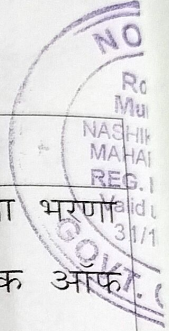 NO
Ro
Mu
NASHIK
MAHA
REG.
Valid
31/1
GOVT.
भरणा
क ऑफ